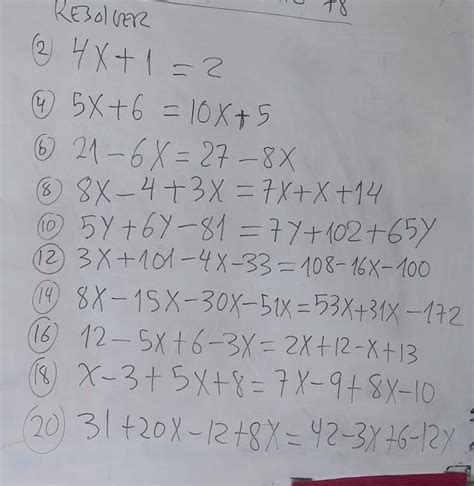 +8
RESOLVER
2 4X+1=2
4 5X+6=10X+5
6 21-6X=27-8X
8 8X-4+3X=7X+X+14
10 5Y+6Y-81=7Y+102+65Y
12 3X+101-4X-33=108-16X-100
14 8X-15X-30X-51X=53X+31X-172
16 12-5X+6-3X=2X+12-X+13
18 X-3+5X+8=7X-9+8X-10
20 31+20X-12+8X=42-3X+6-12X